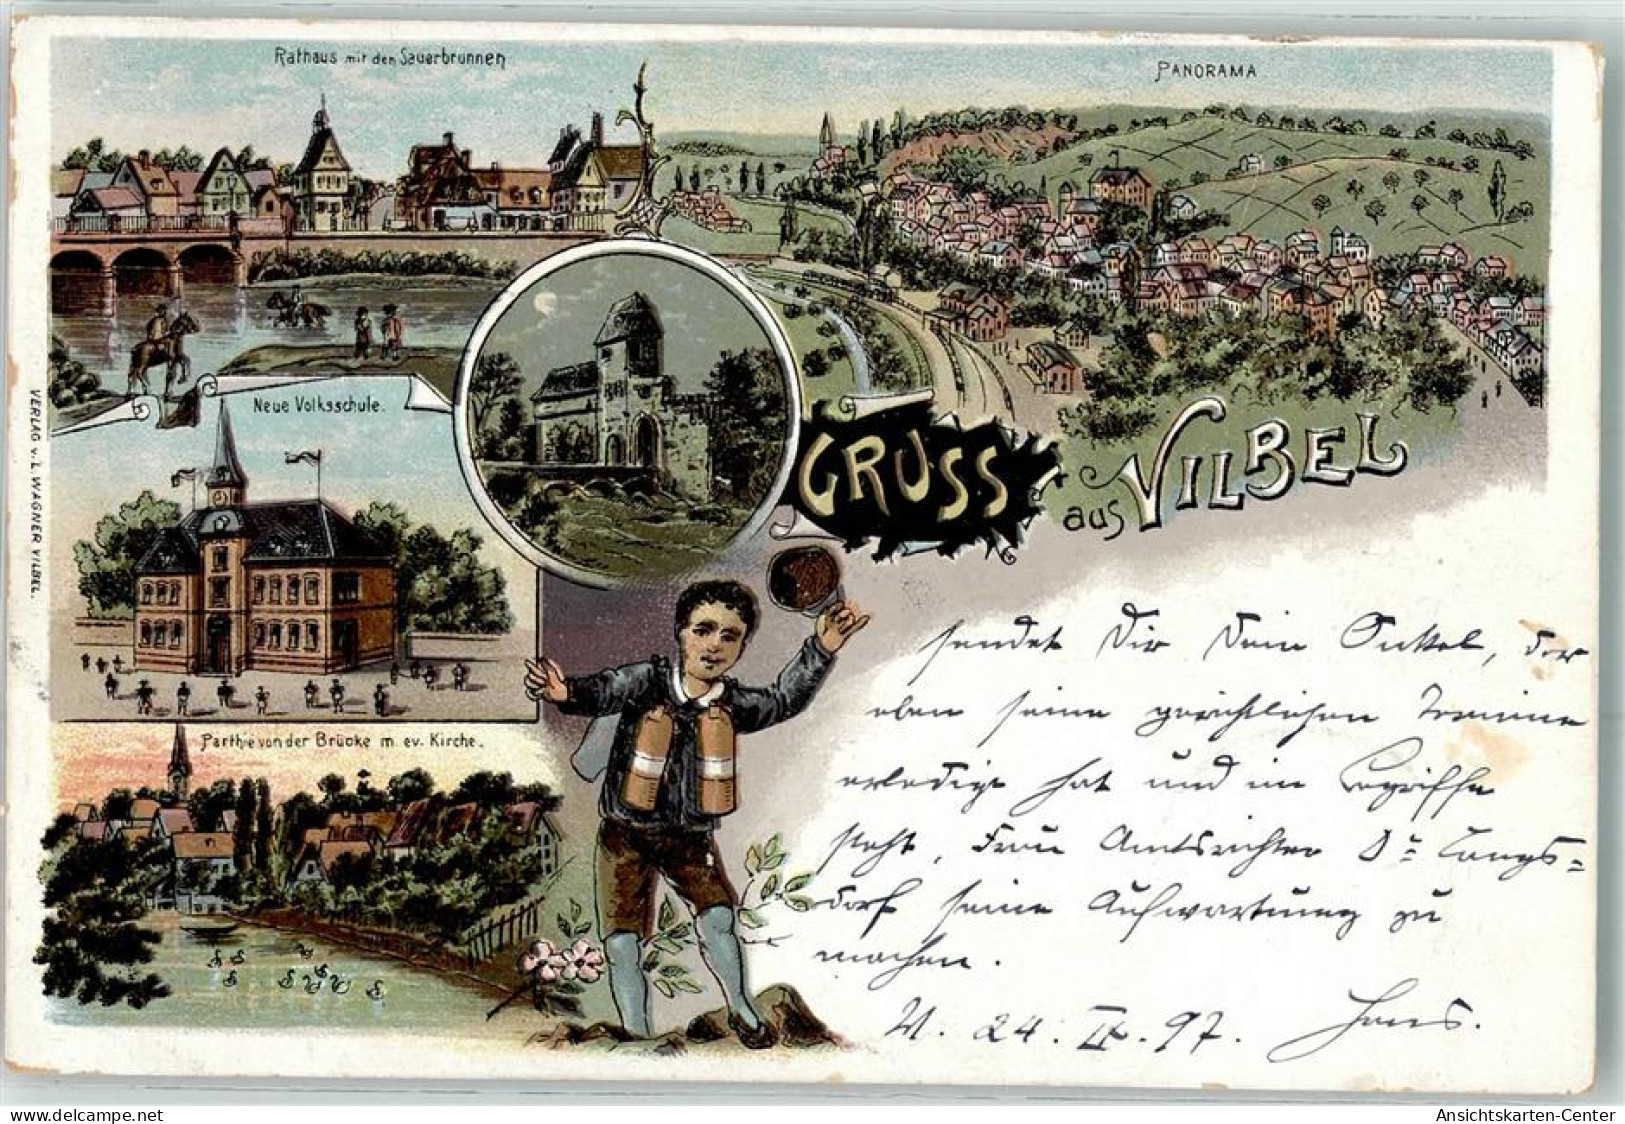 Rathaus mit den Sauerbrunnen
PANORAMA
Neue Volksschule.
GRUSS
aus VILBEL
VERLAG v. L. WAGNER VILBEL.
Parthie von der Brücke m. ev. Kirche.
sendet Dir Dein Onkel, der
eben seine gerichtlichen Termine
erledigt hat und im Begriffe
steht, Frau Amtsrichter Dr Langs=
dorf seine Aufwartung zu
machen.
V. 24. IX. 97. Hans.
Ansichtskarten-Center